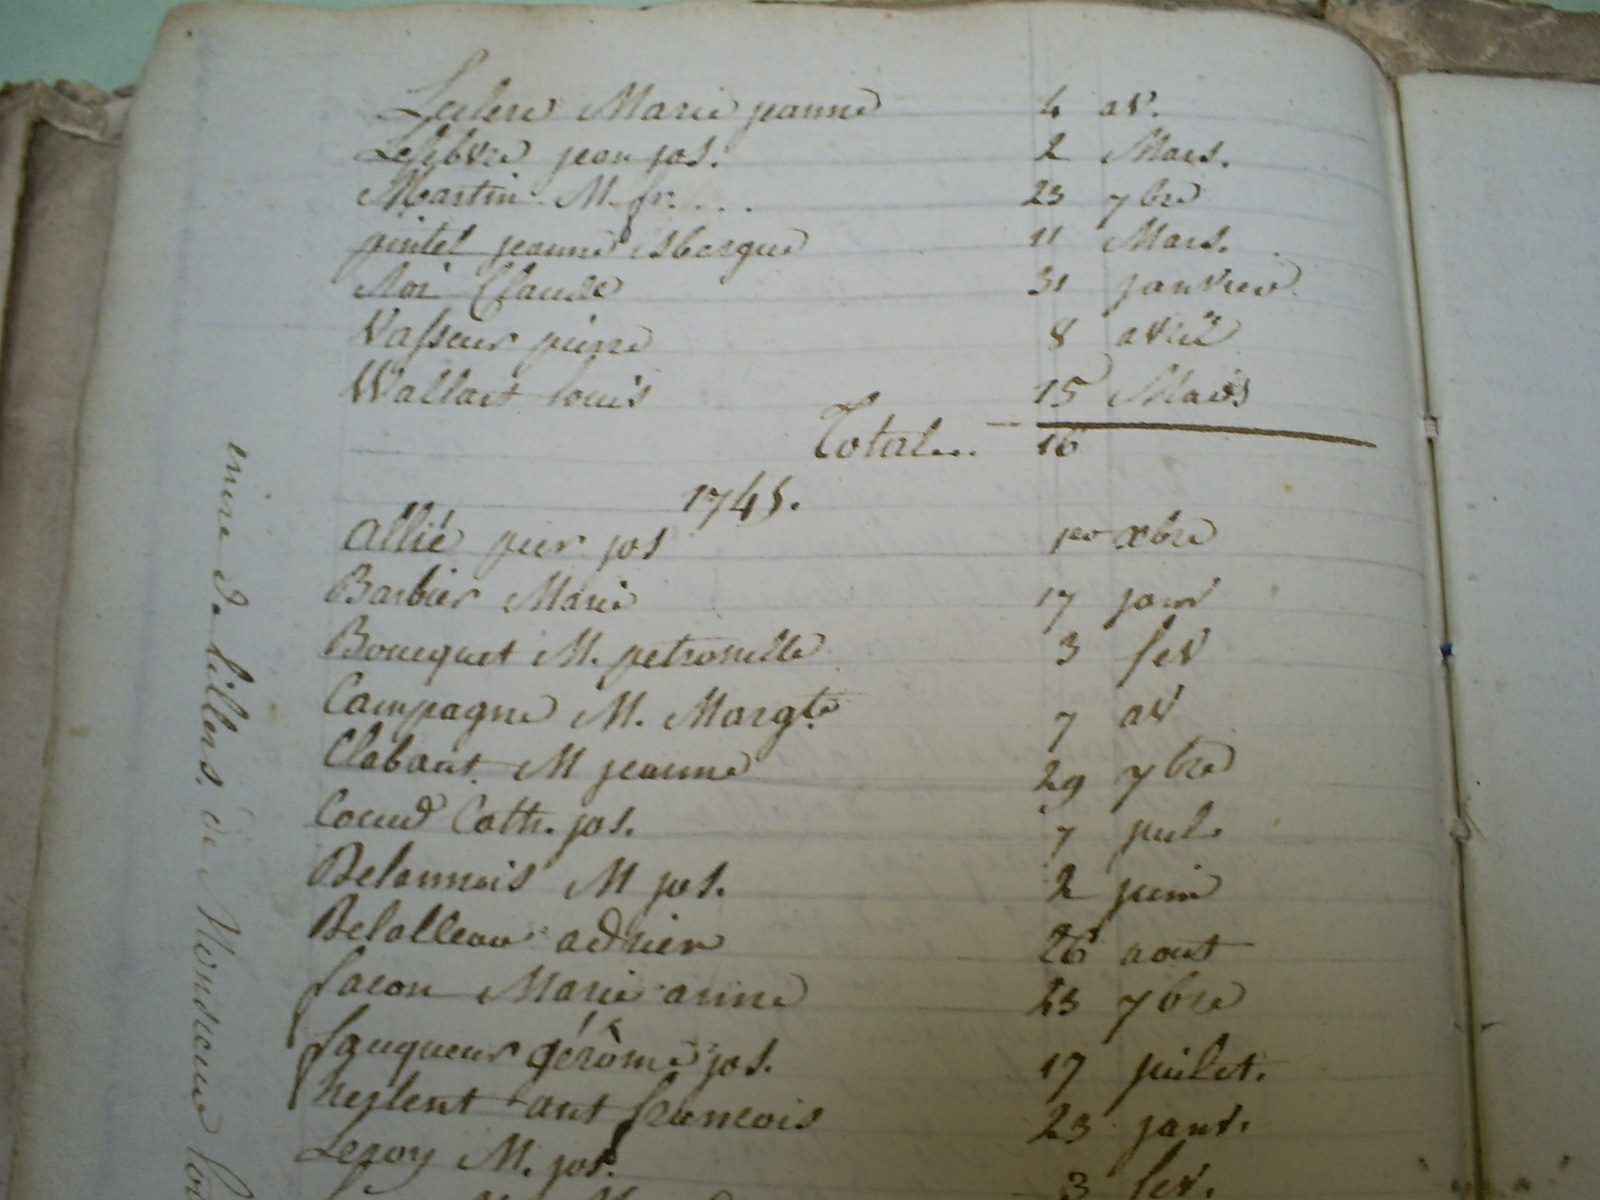 Leclerc Marie jeanne 4 av.
Lefebvre jean jos. 2 Mars.
Martin M. fr. . . . 23 7bre
pintel jeanne isbergue 11 Mars.
Roi Claude 31 janvier
Vasseur pierre 8 avril
Wallart louis 15 Mars
Total... 16
1745.
allié pier jos per xbre
Barbier Marie 17 janv
Boucquet M. petronille 3 fev
Campagne M. Margte 7 av
Clabaut M jeanne 29 7bre
Cath. jos. 7 juil.
Delannois M jos. 2 juin
Delalleau adrien 26 aout
facon Marie anne 23 7bre
fauqueur gérôme jos. 17 juilet.
ant francois 23 janv.
Leroy M. jos. 3 fev.
de lillers, de Monsieur